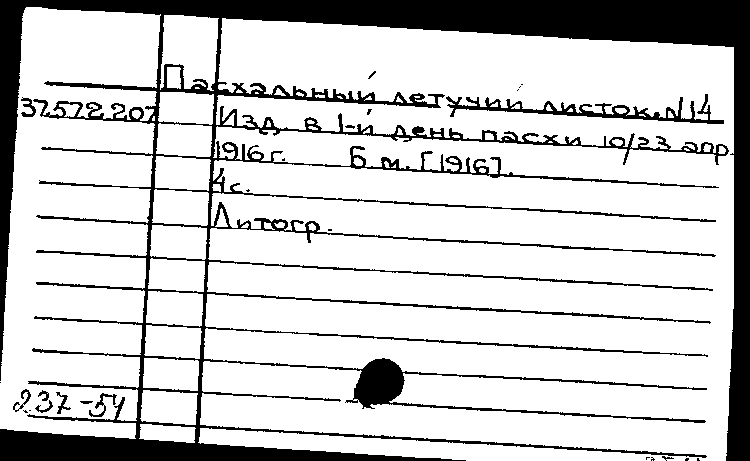 Пасхальный летучий листок. N14
37.572.207
Изд. в 1-й день пасхи 10/23 апр.
1916 г. Б.м. [1916].
4 с.
Литогр.
237-54